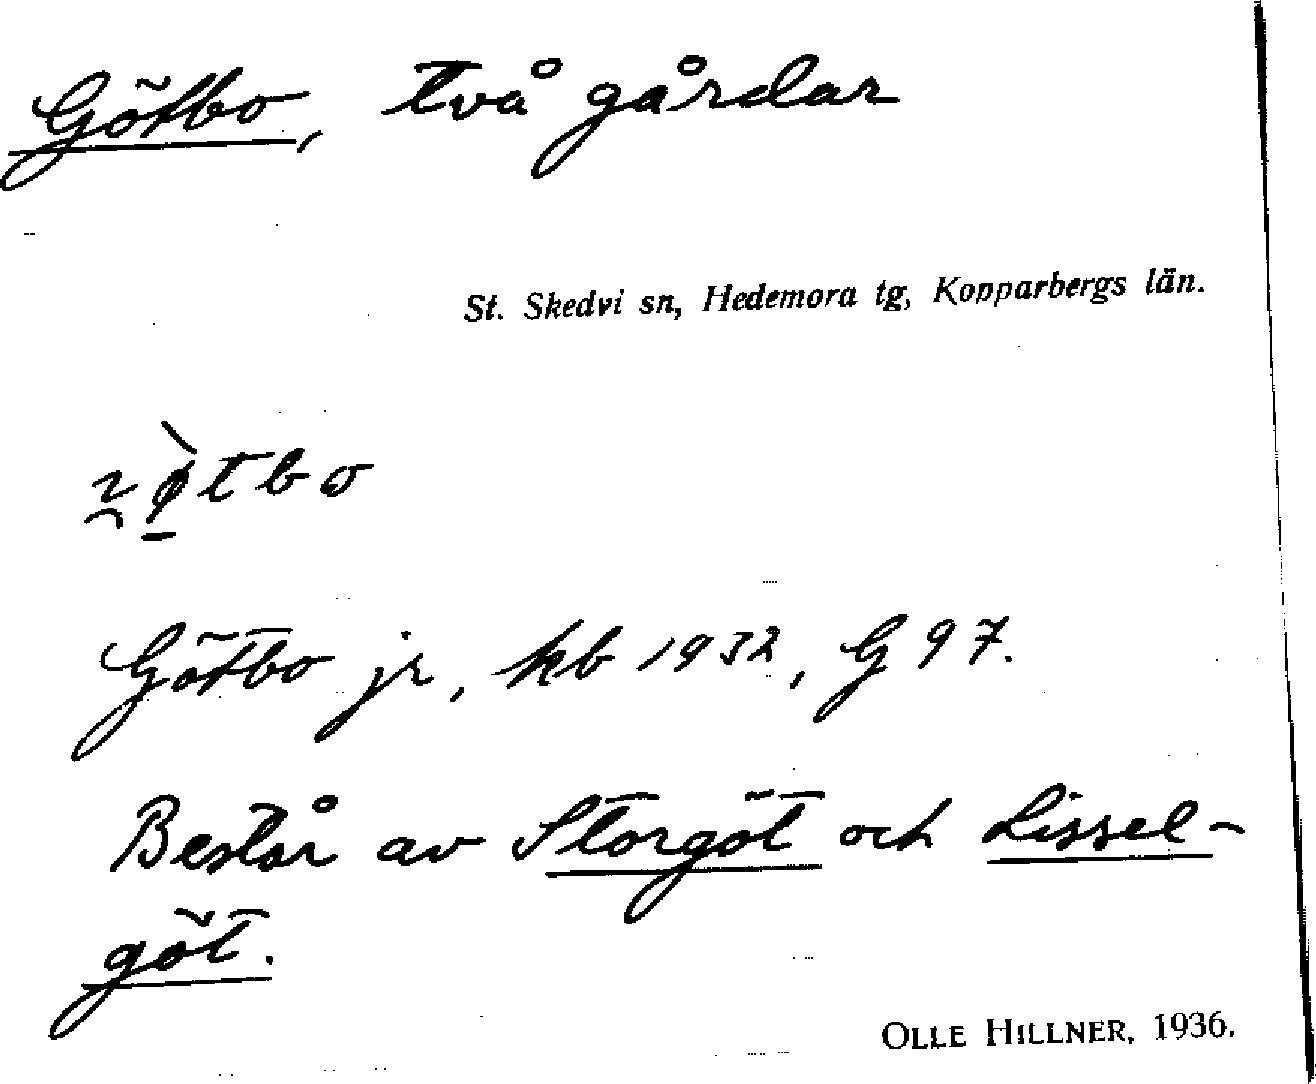 Götbo, två gårdar
St. Skedvi sn, Hedemora tg, Kopparbergs län.
Götbo jr, kb 1932, G 97.
Består av Storgöt och Lissel-
göt.
OLLE HILLNER, 1936.